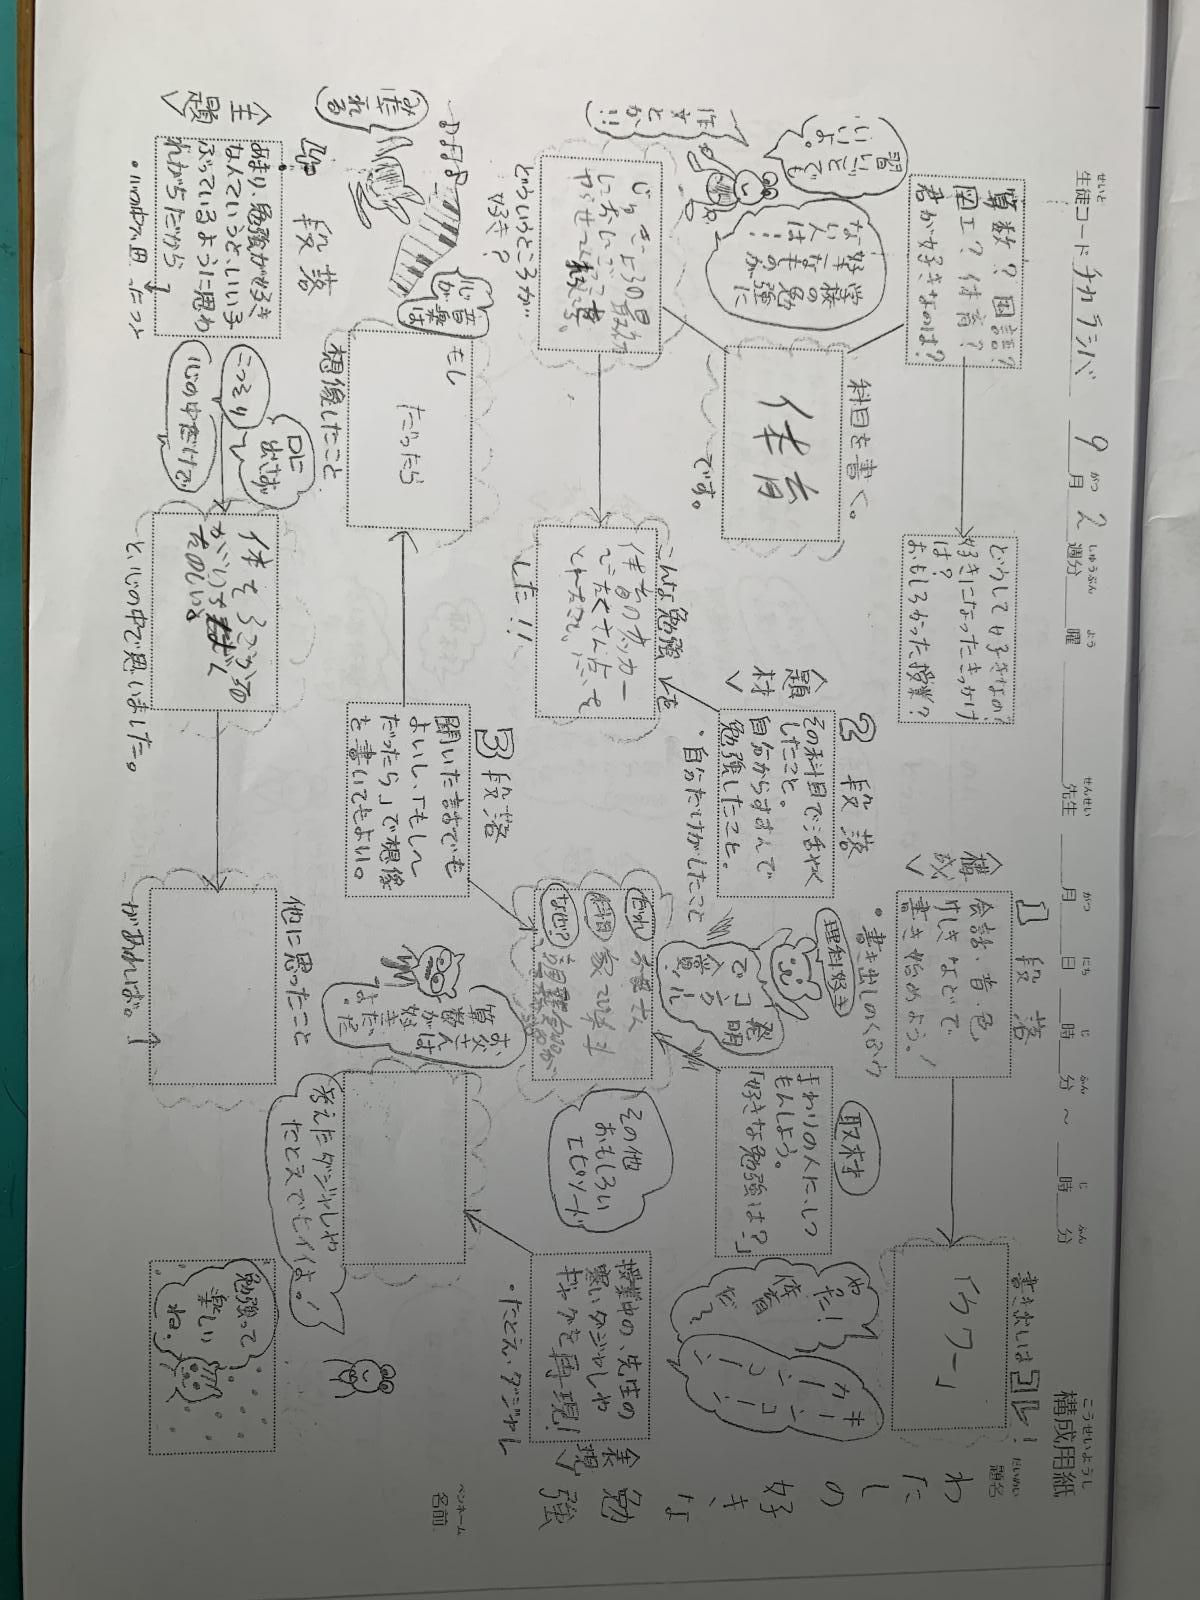 構成用紙
こうせいようし
題名
だいめい
わたしの好きな勉強
ペンネーム
名前
生徒コード
せいと
チカラシバ
9月2週分
がつ
しゅうぶん
曜
よう
先生
せんせい
月
がつ
日
にち
時
じ
分
ふん
～
時
じ
分
ふん
書き出しはコレ!
1段落
<構成>
会話、音、色、
けしきなどで
書き始めよう。!
・書き出しのくふう
やった!
体育
だ～
キーンコーン
カーンコーン
どうして好きなの?
好きになったきっかけ
は?
おもしろかった授業?
算数?国語?
図工?体育?
君が好きなのは?
科目を書く。
体育
です。
学校の勉強に
好きなものが
ない人は!
習いごとでも
いいよ。
ほ育とか!!
2段落
<題材>
その科目で活やく
したこと。
自分からすすんで
勉強したこと。
・自分だけがしたこと
こんな勉強を
体育のサッカー
でたくさん点を
とれたこと、
した!!
どういうところが
好き?
取材
まわりの人に、しつ
もんしよう。
「好きな勉強は?」
理科好き
発明
コウ
で金賞!!
だれ
科目
なぜ?
お母さん
家で楽しく
その他
おもしろい
エピソード
お父さんは
算数が好き
だったよ。
3段落
聞いた話でも
よいし、「もし～
だったら」で想像
を書いてもよい。
もし
だったら
想像したこと
音楽は
心が
みだれる
<表現>
授業中の、先生の
寒いダジャレや
ギャグを再現!
・たとえ・ダジャレ
考えたダジャレや
たとえでもイイよ。!
4段落
<主題>
あまり、勉強が好き
なんていうと、いい子
ぶっているように思わ
れがちだから
・心の中で思ったこと
口に
出さず
こっそり
心の中だけで
体をうごかすの
がいちばん
たのしい
と、心の中で思いました。
他に思ったこと
があれば。↑
勉強って
楽しい
ね。